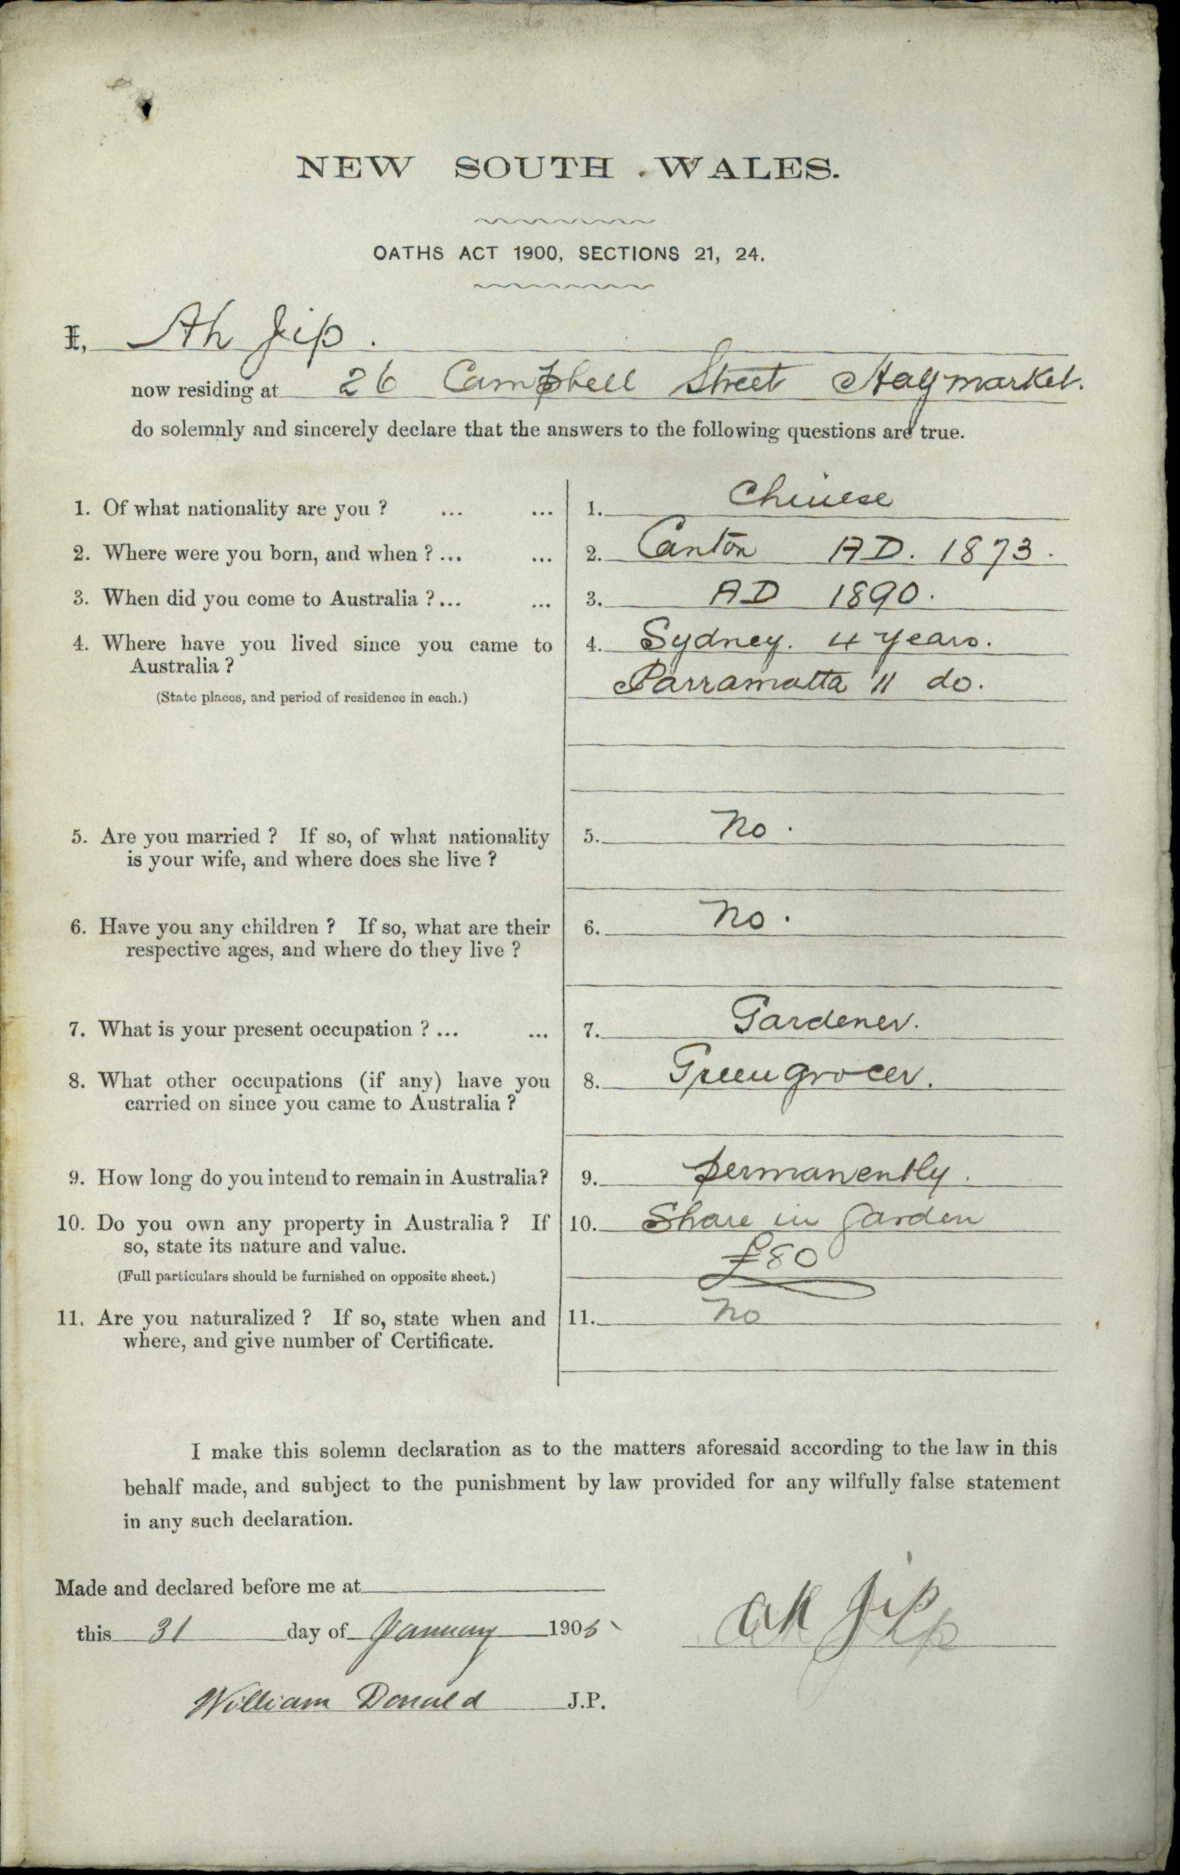 NEW SOUTH WALES.
OATHS ACT 1900, SECTIONS 21, 24.
I, Ah Jip.
now residing at 26 Campbell Street Haymarket.
do solemnly and sincerely declare that the answers to the following questions are true.
1. Of what nationality are you ? ... ... 1. Chinese
2. Where were you born, and when ? ... ... 2. Canton AD. 1873.
3. When did you come to Australia ? ... ... 3. AD 1890.
4. Where have you lived since you came to 4. Sydney. 4 years.
Australia ? Parramatta 11 do.
(State places, and period of residence in each.)
5. Are you married ? If so, of what nationality 5. No.
is your wife, and where does she live ?
6. Have you any children ? If so, what are their 6. No.
respective ages, and where do they live ?
7. What is your present occupation ? ... ... 7. Gardener.
8. What other occupations (if any) have you 8. Greengrocer.
carried on since you came to Australia ?
9. How long do you intend to remain in Australia? 9. permanently.
10. Do you own any property in Australia ? If 10. Share in Garden
so, state its nature and value. £80
(Full particulars should be furnished on opposite sheet.)
11. Are you naturalized ? If so, state when and 11. No
where, and give number of Certificate.
I make this solemn declaration as to the matters aforesaid according to the law in this
behalf made, and subject to the punishment by law provided for any wilfully false statement
in any such declaration.
Made and declared before me at
this 31 day of January 1905
Ah Jip
William Donald J.P.